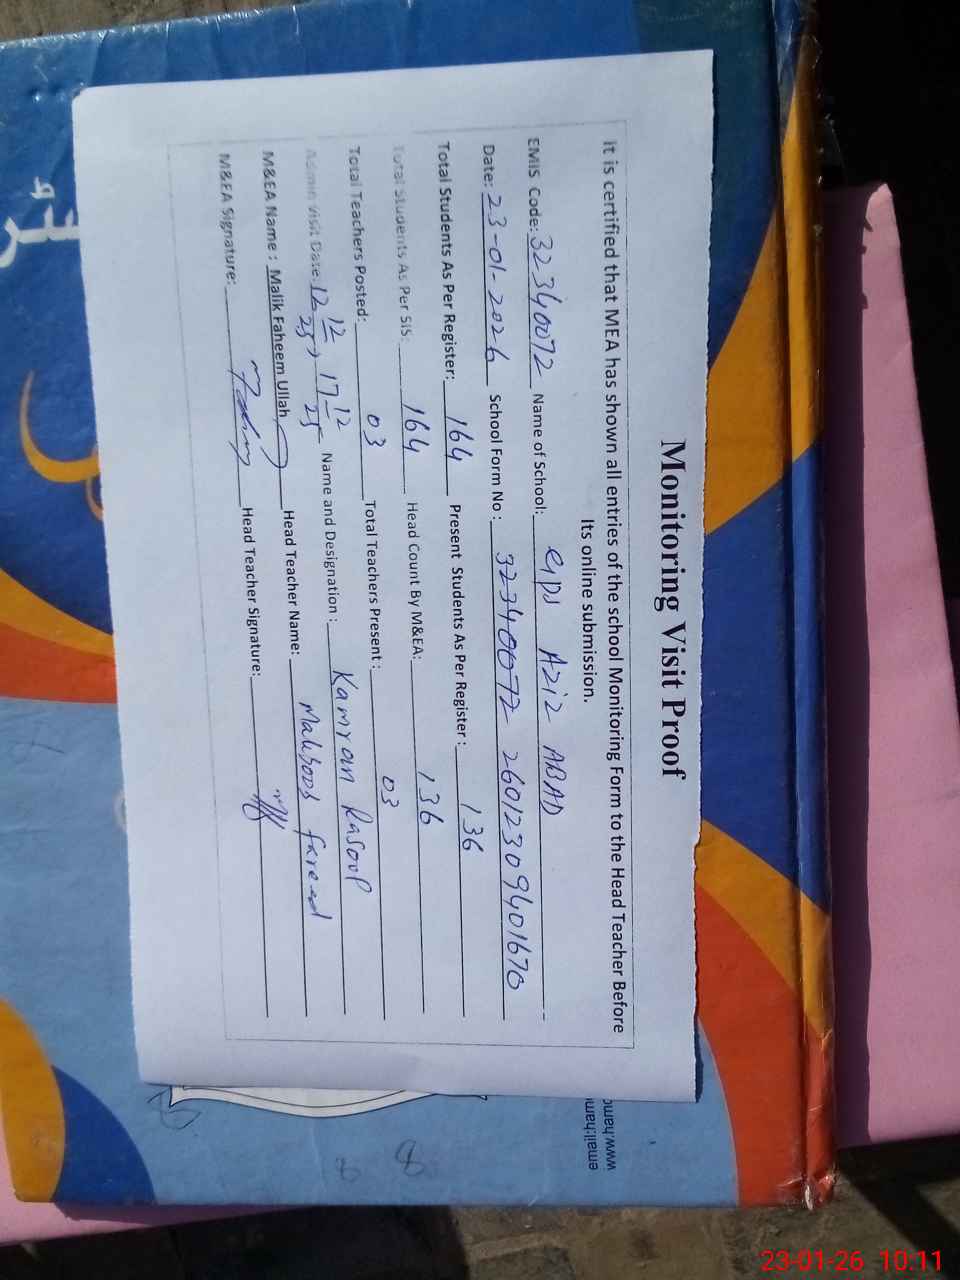 Monitoring Visit Proof
It is certified that MEA has shown all entries of the school Monitoring Form to the Head Teacher Before
Its online submission.
EMIS Code: 32340072 Name of School: GPS Aziz ABAD
Date: 23-01-2026 School Form No : 32340072 26012309401670
Total Students As Per Register: 164 Present Students As Per Register : 136
Total Students As Per SIS: 164 Head Count By M&EA: 136
Total Teachers Posted: 03 Total Teachers Present : 03
Admin Visit Date: 12 12/25, 17 12/25 Name and Designation : Kamran Rasool
M&EA Name : Malik Faheem Ullah Head Teacher Name: Mahboob fareed
M&EA Signature: Head Teacher Signature:
email:ham
23-01-26 10:11